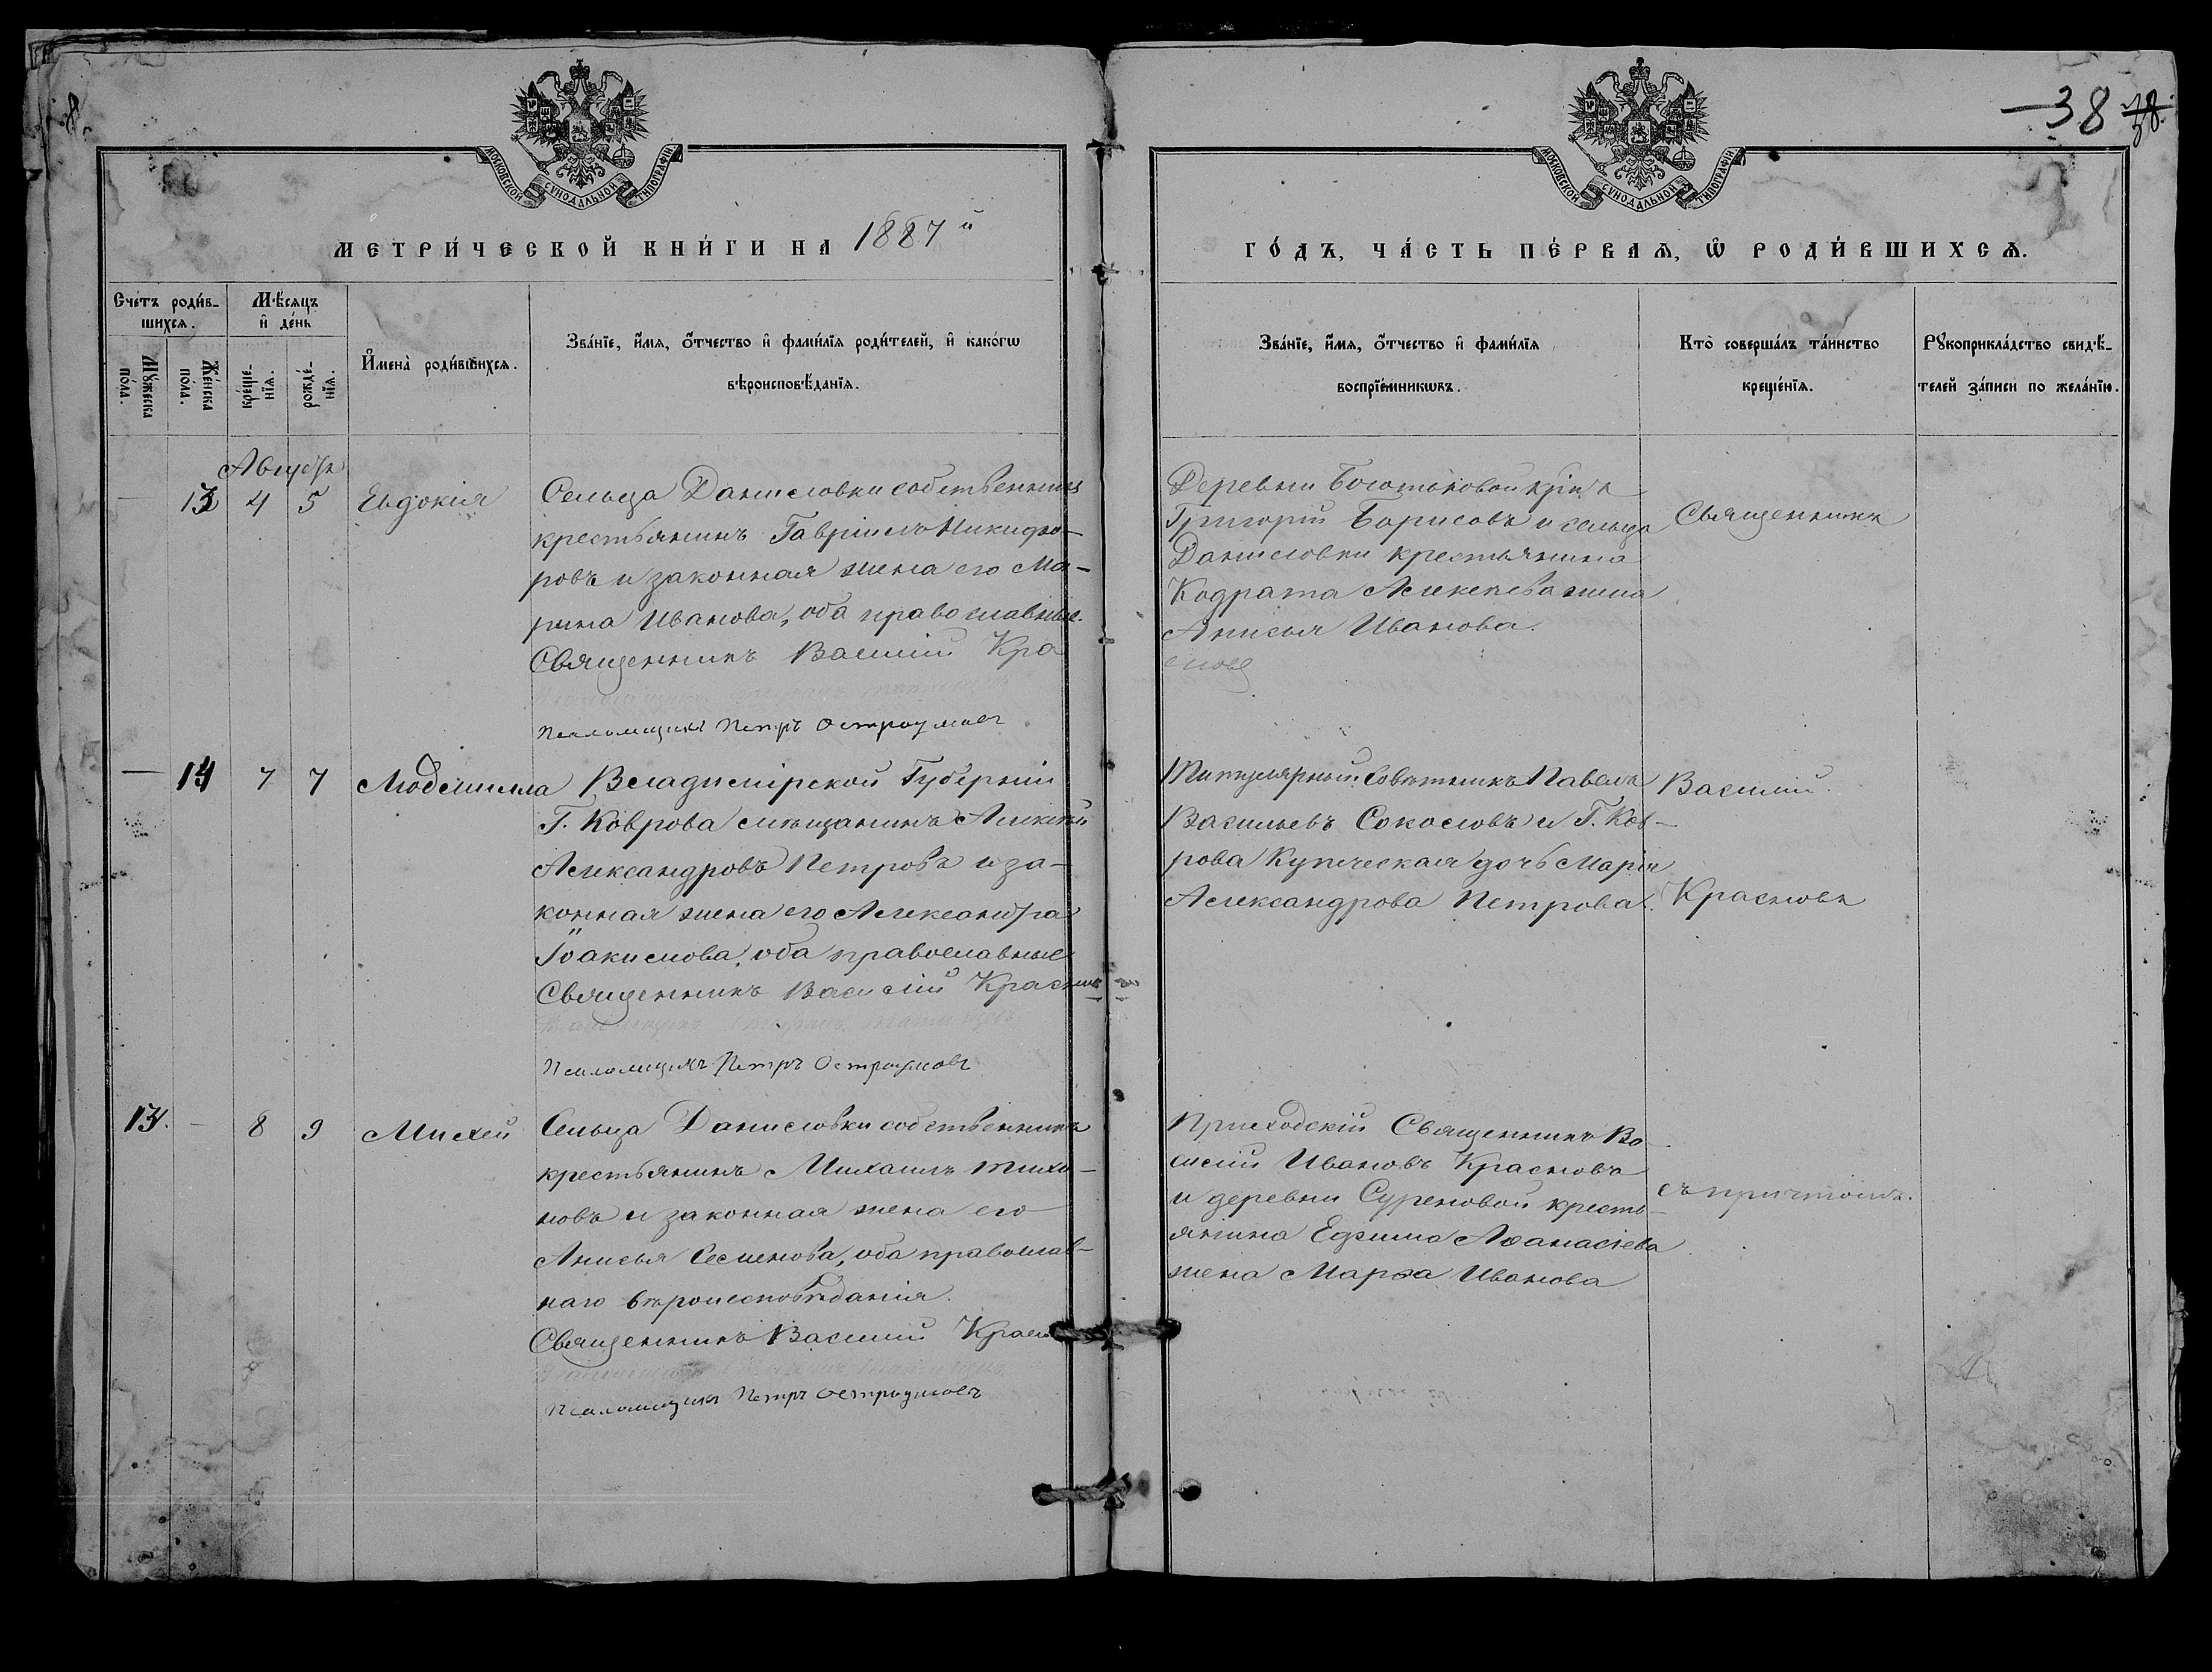 38 38.
МОСКОВСКОЙ СѴНОДАЛЬНОЙ ТИПОГРАФІИ
МОСКОВСКОЙ СѴНОДАЛЬНОЙ ТИПОГРАФІИ
МЕТРИ́ЧЕСКОЙ КНИ́ГИ НА 1887 й
ГО́ДЪ, ЧА́СТЬ ПЕ́РВАѦ, Ѿ РОДИ́ВШИХСѦ.
Сче́тъ роди́в-
шихсѧ.
Мѣ́сѧцъ
и҆ де́нь
Мꙋ́жеска
по́ла.
Же́нска
по́ла.
креще́-
нїѧ.
рожде́-
нїѧ.
И҆мена̀ роди́вшихсѧ.
Зва́нїе, и҆́мѧ, ѻ҆́тчество и҆ фами́лїѧ роди́телей, и҆ како́гѡ
вѣроисповѣ́данїѧ.
Зва́нїе, и҆́мѧ, ѻ҆́тчество и҆ фами́лїѧ
воспрїе́мникѡвъ.
Кто̀ соверша́лъ та́инство
креще́нїѧ.
Рꙋкоприкла́дство свидѣ́-
телей за́писи по жела́нїю.
Августъ
— 13 4 5 Евдокія
Сельца Даниловки собственникъ
крестьянинъ Гавріилъ Никифо-
ровъ и законная жена его Ма-
рина Иванова, оба православные.
Священникъ Василій Кра
сновъ
Псаломщикъ Петръ Остроумовъ
Деревни
Григорій Борисовъ и сельца
Даниловки крестьянина
Кодрата Алексѣева жена
Анисья Иванова.
Священникъ
— 14 7 7 Людмилла
Владимірской Губерніи
Г. Коврова мѣщанинъ Алексѣй
Александровъ Петровъ и за-
конная жена его Александра
Іоакимова, оба православные
Священникъ Василій Красновъ
Псаломщикъ Петръ Остроумовъ
Титулярный Совѣтникъ Павелъ
Васильевъ Соколовъ и Г. Ков-
рова Купеческая дочь Марія
Александрова Петрова.
Василій
Красновъ
13. — 8 9 Михей
Сельца Даниловки собственникъ
крестьянинъ Михаилъ Тихо-
новъ и законная жена его
Анисья Семенова, оба православ-
наго вѣроисповѣданія.
Священникъ Василій Красн
Псаломщикъ Петръ Остроумовъ
Приходскій Священникъ Ва-
силій Ивановъ Красновъ
и деревни Суреновой кресть-
янина Ефима Аѳанасіева
жена Марѳа Иванова
съ причтомъ.